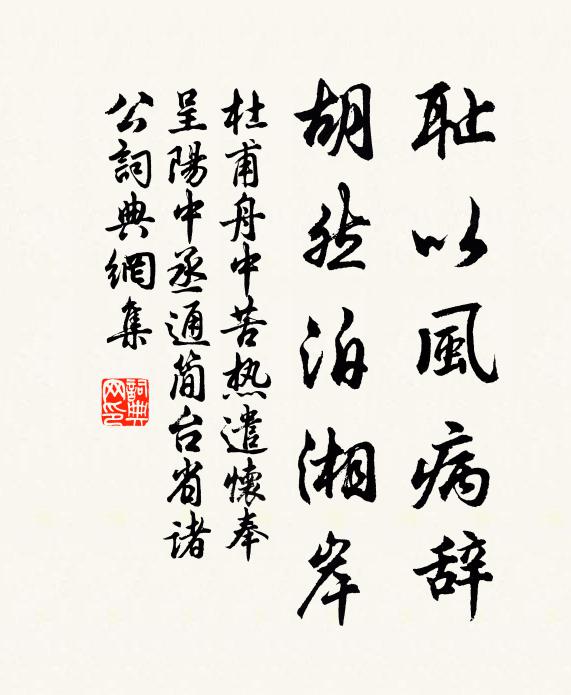 耻以風病辞
胡然泊湘岸
杜甫舟中苦热遣懷奉
呈陽中丞通简台省诸
公詞典網集
詞典網印